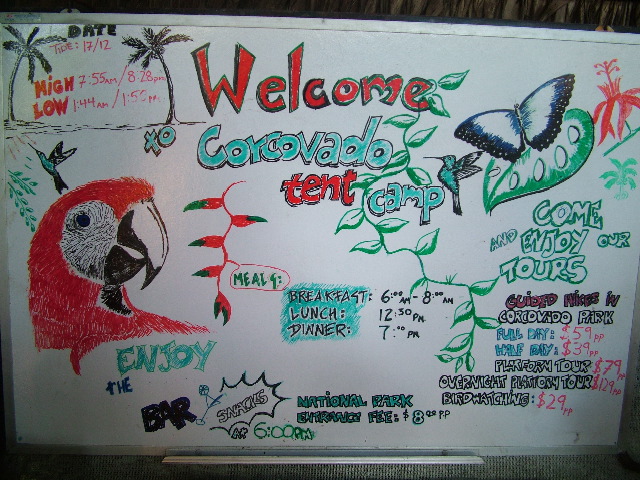 DATE
TIDE: 17/12
HIGH 7:55AM / 8:28PM
LOW 1:44AM / 1:55PM
Welcome
to Corcovado
tent camp
COME
AND ENJOY OUR
TOURS
MEALS:
BREAKFAST: 6:00 AM - 8:00 AM
LUNCH: 12:30 PM
DINNER: 7:00 PM
GUIDED HIKES IN
CORCOVADO PARK
FULL DAY: $59 PP
HALF DAY: $39 PP
PLATFORM TOUR $79 PP
OVERNIGHT PLATFORM TOUR $129 PP
BIRDWATCHING: $29 PP
ENJOY
THE
BAR
SNACKS
AT 6:00PM
NATIONAL PARK
ENTRANCE FEE: $8.00 PP